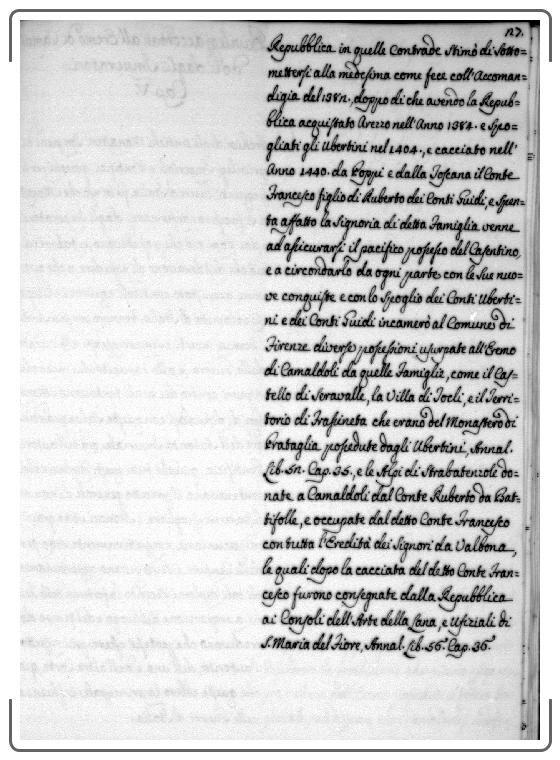 127.
Repubblica in quelle Contrade Stimò di Sotto=
mettersi alla medesima come fece coll'Accoman=
digia del 1381, doppo di che avendo la Repub=
blica acquistato Arezzo nell'Anno 1384. e Spo=
gliati gli Ubertini nel 1404, e cacciato nell'
Anno 1440. da Poppi e dalla Toscana il Conte
Francesco figlio di Ruberto dei Conti Guidi, e Spen=
ta affatto la Signoria di detta Famiglia venne
ad assicurarsi il pacifico possesso del Casentino,
e a circondarlo da ogni parte con le Sue nuo=
ve conquiste e con lo Spoglio dei Conti Uberti=
ni e dei Conti Guidi incamerò al Comune di
Firenze diverse possessioni usurpate all'Eremo
di Camaldoli da quelle Famiglie, come il Cas=
tello di Seravalle, la Villa di Tocli, e il Terri=
torio di Frassineta che erano del Monastero di
Prataglia possedute dagli Ubertini, Annal.
Lib. 5n. Cap. 35., e le Alpi di Strabatenzole do=
nate a Camaldoli dal Conte Ruberto da Bat=
tifolle, e occupate dal detto Conte Francesco
con tutta l'Eredità dei Signori da Valbona,
le quali dopo la cacciata del detto Conte Fran=
cesco furono consegnate dalla Repubblica
ai Consoli dell'Arte della Lana, e Ufiziali di
S. Maria del Fiore, Annal. Lib. 56. Cap. 36.